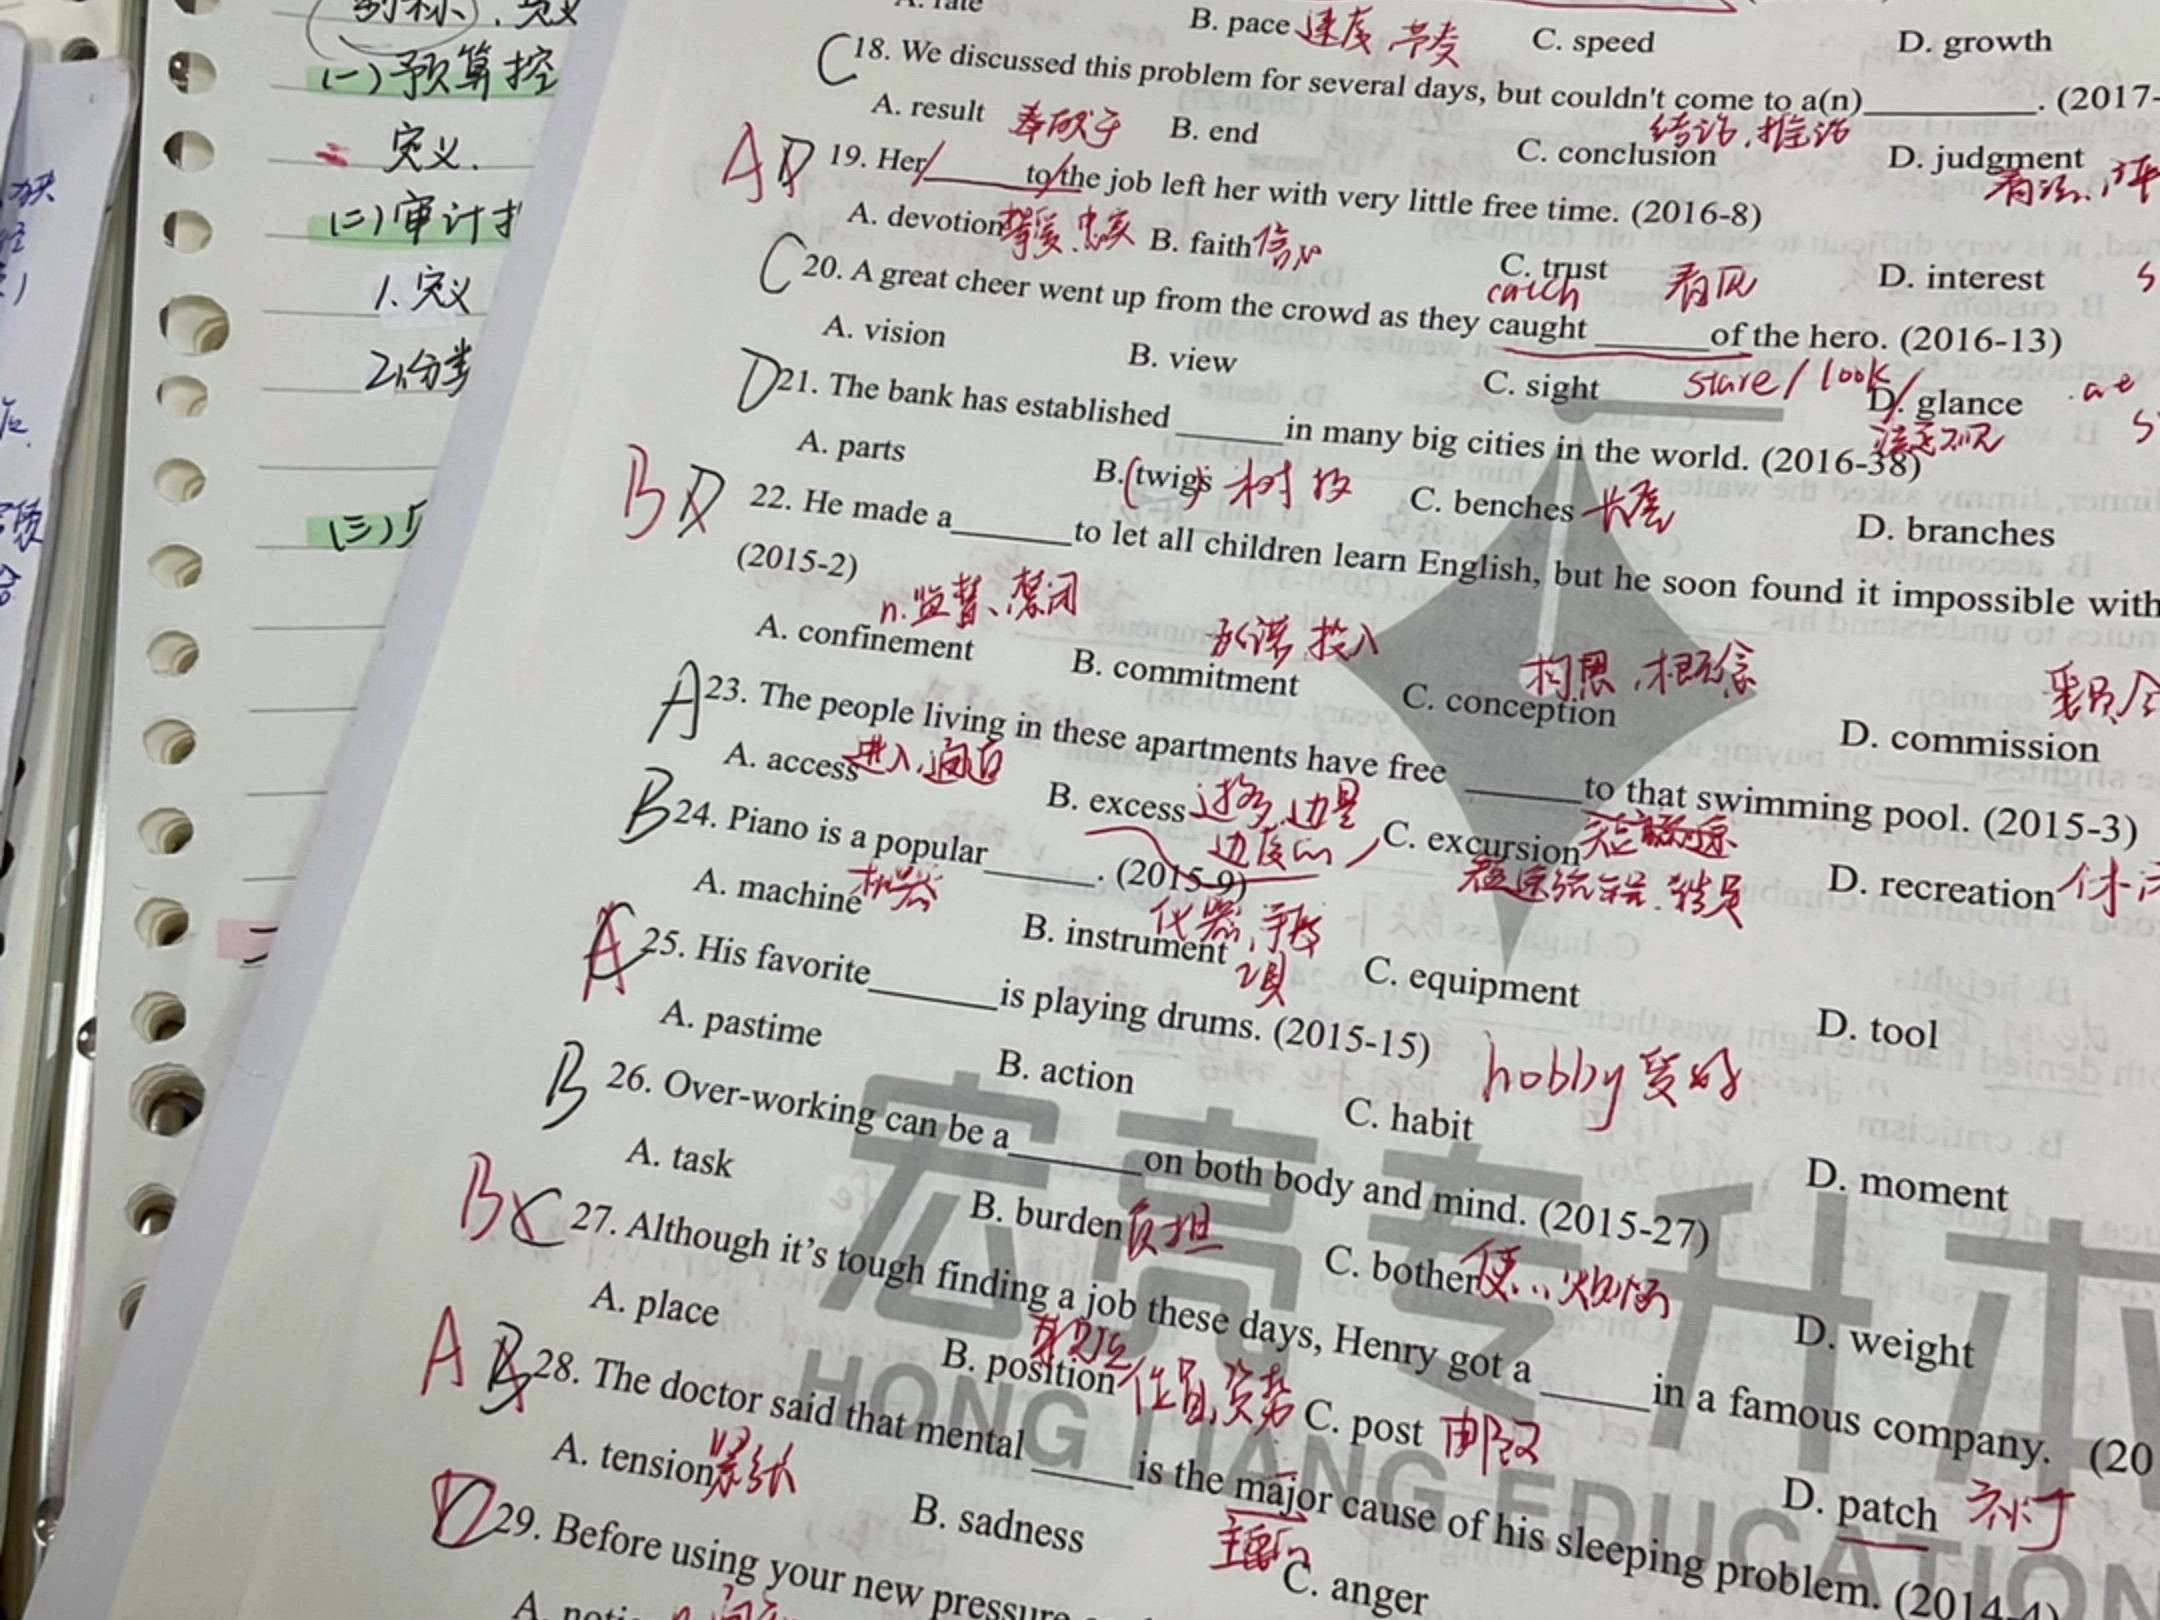 (一)预算控
定义.
(二)审计
1.定义
2.分类
(三)
B. pace 速度 节奏
C. speed
D. growth
C 18. We discussed this problem for several days, but couldn't come to a(n)________. (2017-
A. result 奉献于
B. end
结论.推论
C. conclusion
D. judgment
看法
A D 19. Her______to the job left her with very little free time. (2016-8)
A. devotion 挚爱.忠实
B. faith 信心
C. trust
D. interest
catch 看见
C 20. A great cheer went up from the crowd as they caught ______of the hero. (2016-13)
A. vision
B. view
C. sight
stare/look/
D. glance
D 21. The bank has established ______in many big cities in the world. (2016-38)
A. parts
B. (twigs) 树枝
C. benches 长凳
D. branches
B D 22. He made a______to let all children learn English, but he soon found it impossible with
(2015-2)
n.监督、禁闭
承诺,投入
构思,概念
委员会
A. confinement
B. commitment
C. conception
D. commission
A 23. The people living in these apartments have free ______to that swimming pool. (2015-3)
A. access 进入,通道
B. excess 过多,过量
过度的
C. excursion 短途
D. recreation
B 24. Piano is a popular______. (2015-9)
A. machine 机器
B. instrument 仪器,手段
C. equipment
D. tool
A C 25. His favorite______is playing drums. (2015-15)
A. pastime
B. action
C. habit
D. moment
hobby 爱好
B 26. Over-working can be a______on both body and mind. (2015-27)
A. task
B. burden 负担
C. bother 使…烦恼
D. weight
B C 27. Although it's tough finding a job these days, Henry got a _____in a famous company. (20
A. place
B. position 位置,姿势
C. post 邮政
D. patch 补丁
A B 28. The doctor said that mental _____ is the major cause of his sleeping problem. (2014-4)
A. tension 紧张
B. sadness
主要的
C. anger
D 29. Before using your new pressure
宏亮专升本
HONG LIANG EDUCATION